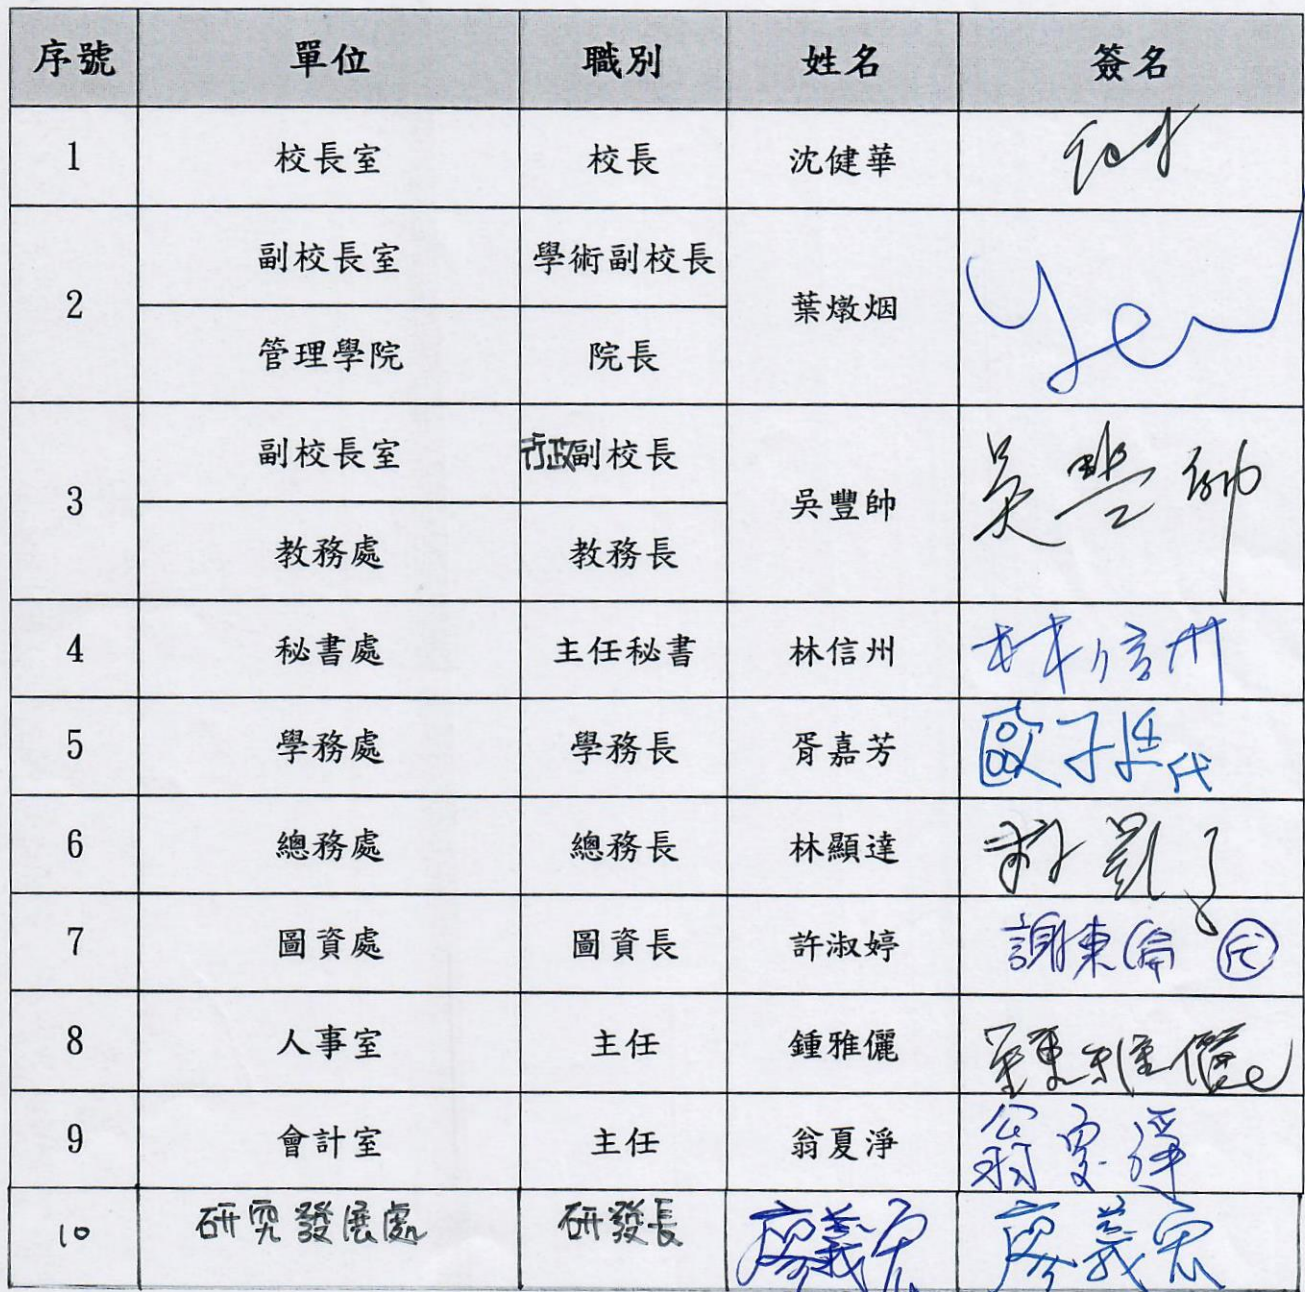 序號 單位 職別 姓名 簽名
1 校長室 校長 沈健華
副校長室 學術副校長
2 葉燉烟 Yeh
管理學院 院長
副校長室 行政副校長
3 吳豐帥 吳豐帥
教務處 教務長
4 秘書處 主任秘書 林信州 林信州
5 學務處 學務長 胥嘉芳 歐子 代
6 總務處 總務長 林顯達
7 圖資處 圖資長 許淑婷 謝東倫 代
8 人事室 主任 鍾雅儷 鍾雅儷
9 會計室 主任 翁夏淨 翁夏淨
10 研究發展處 研發長 廖義宏 廖義宏